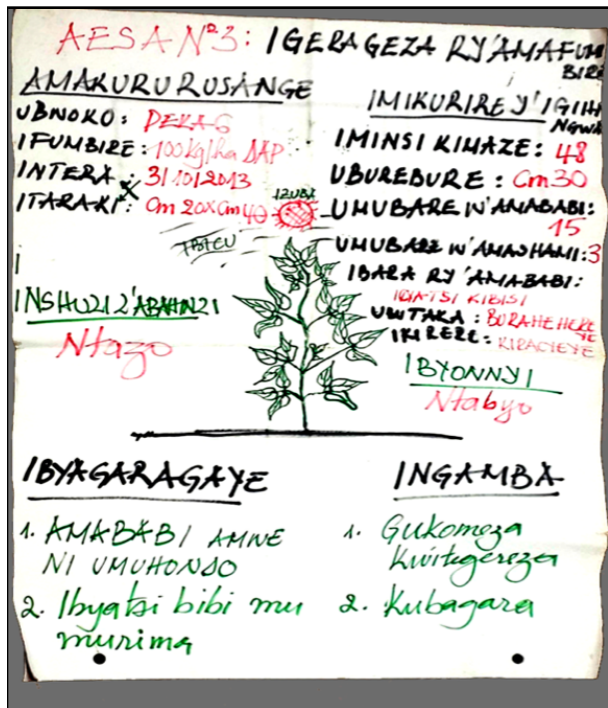 AESA Nº3: IGERAGEZA RY'AMAFUM
BIRE
AMAKURU RUSANGE
UBNOKO: PEKA-6
IFUMBIRE: 100kg/ha DAP
INTERA: 3/10/2013
ITARAKI: Cm 20xCm 40
IZUBA
IBICU
INSHUZI Z'ABAHINZI
Ntazo
IMIKURIRE Y'IGIHI
NGWA
IMINSI KIMAZE: 48
UBUREBURE: Cm 30
UMUBARE W'AMABABI:
15
UMUBARE W'AMASHAMI: 3
IBARA RY'AMABABI:
ICYATSI KIBISI
UBUTAKA: BURAHEHERE
YE
IKIRERE: KIRACYEYE
IBYONNYI
Ntabyo
IBYAGARAGAYE
1. AMABABI AMWE
NI UMUHONDO
2. Ibyatsi bibi mu
murima
INGAMBA
1. Gukomeza
Kwitegereza
2. Kubagara